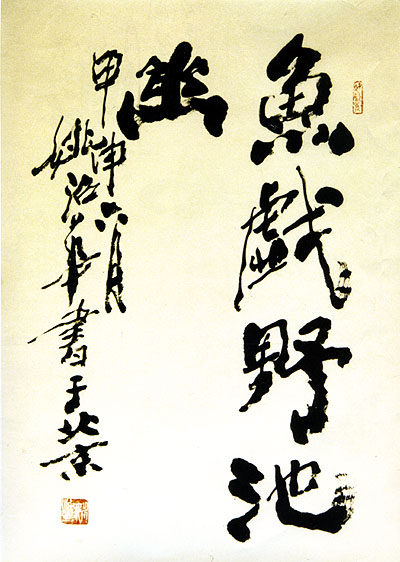 魚戲野池
幽
甲申六月
姚治華書于北京